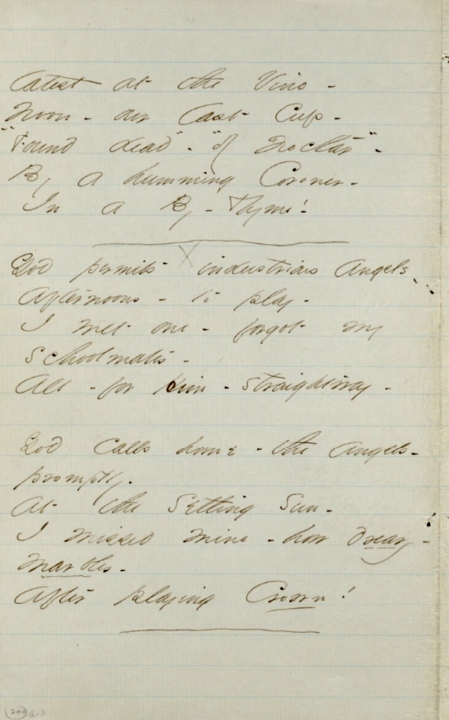 latest at the Vine -
Noon - our last Cup -
"Found dead" - "of Nectar" -
By a humming Coroner -
In a By - Thyme!
God permits industrious Angels -
Afternoons - to play -
I met one - forgot my
Schoolmates -
All - for Him - straightway -
God calls home - the Angels -
promptly -
At the Setting Sun -
I missed mine - how dreary -
Marbles -
After playing Crown!